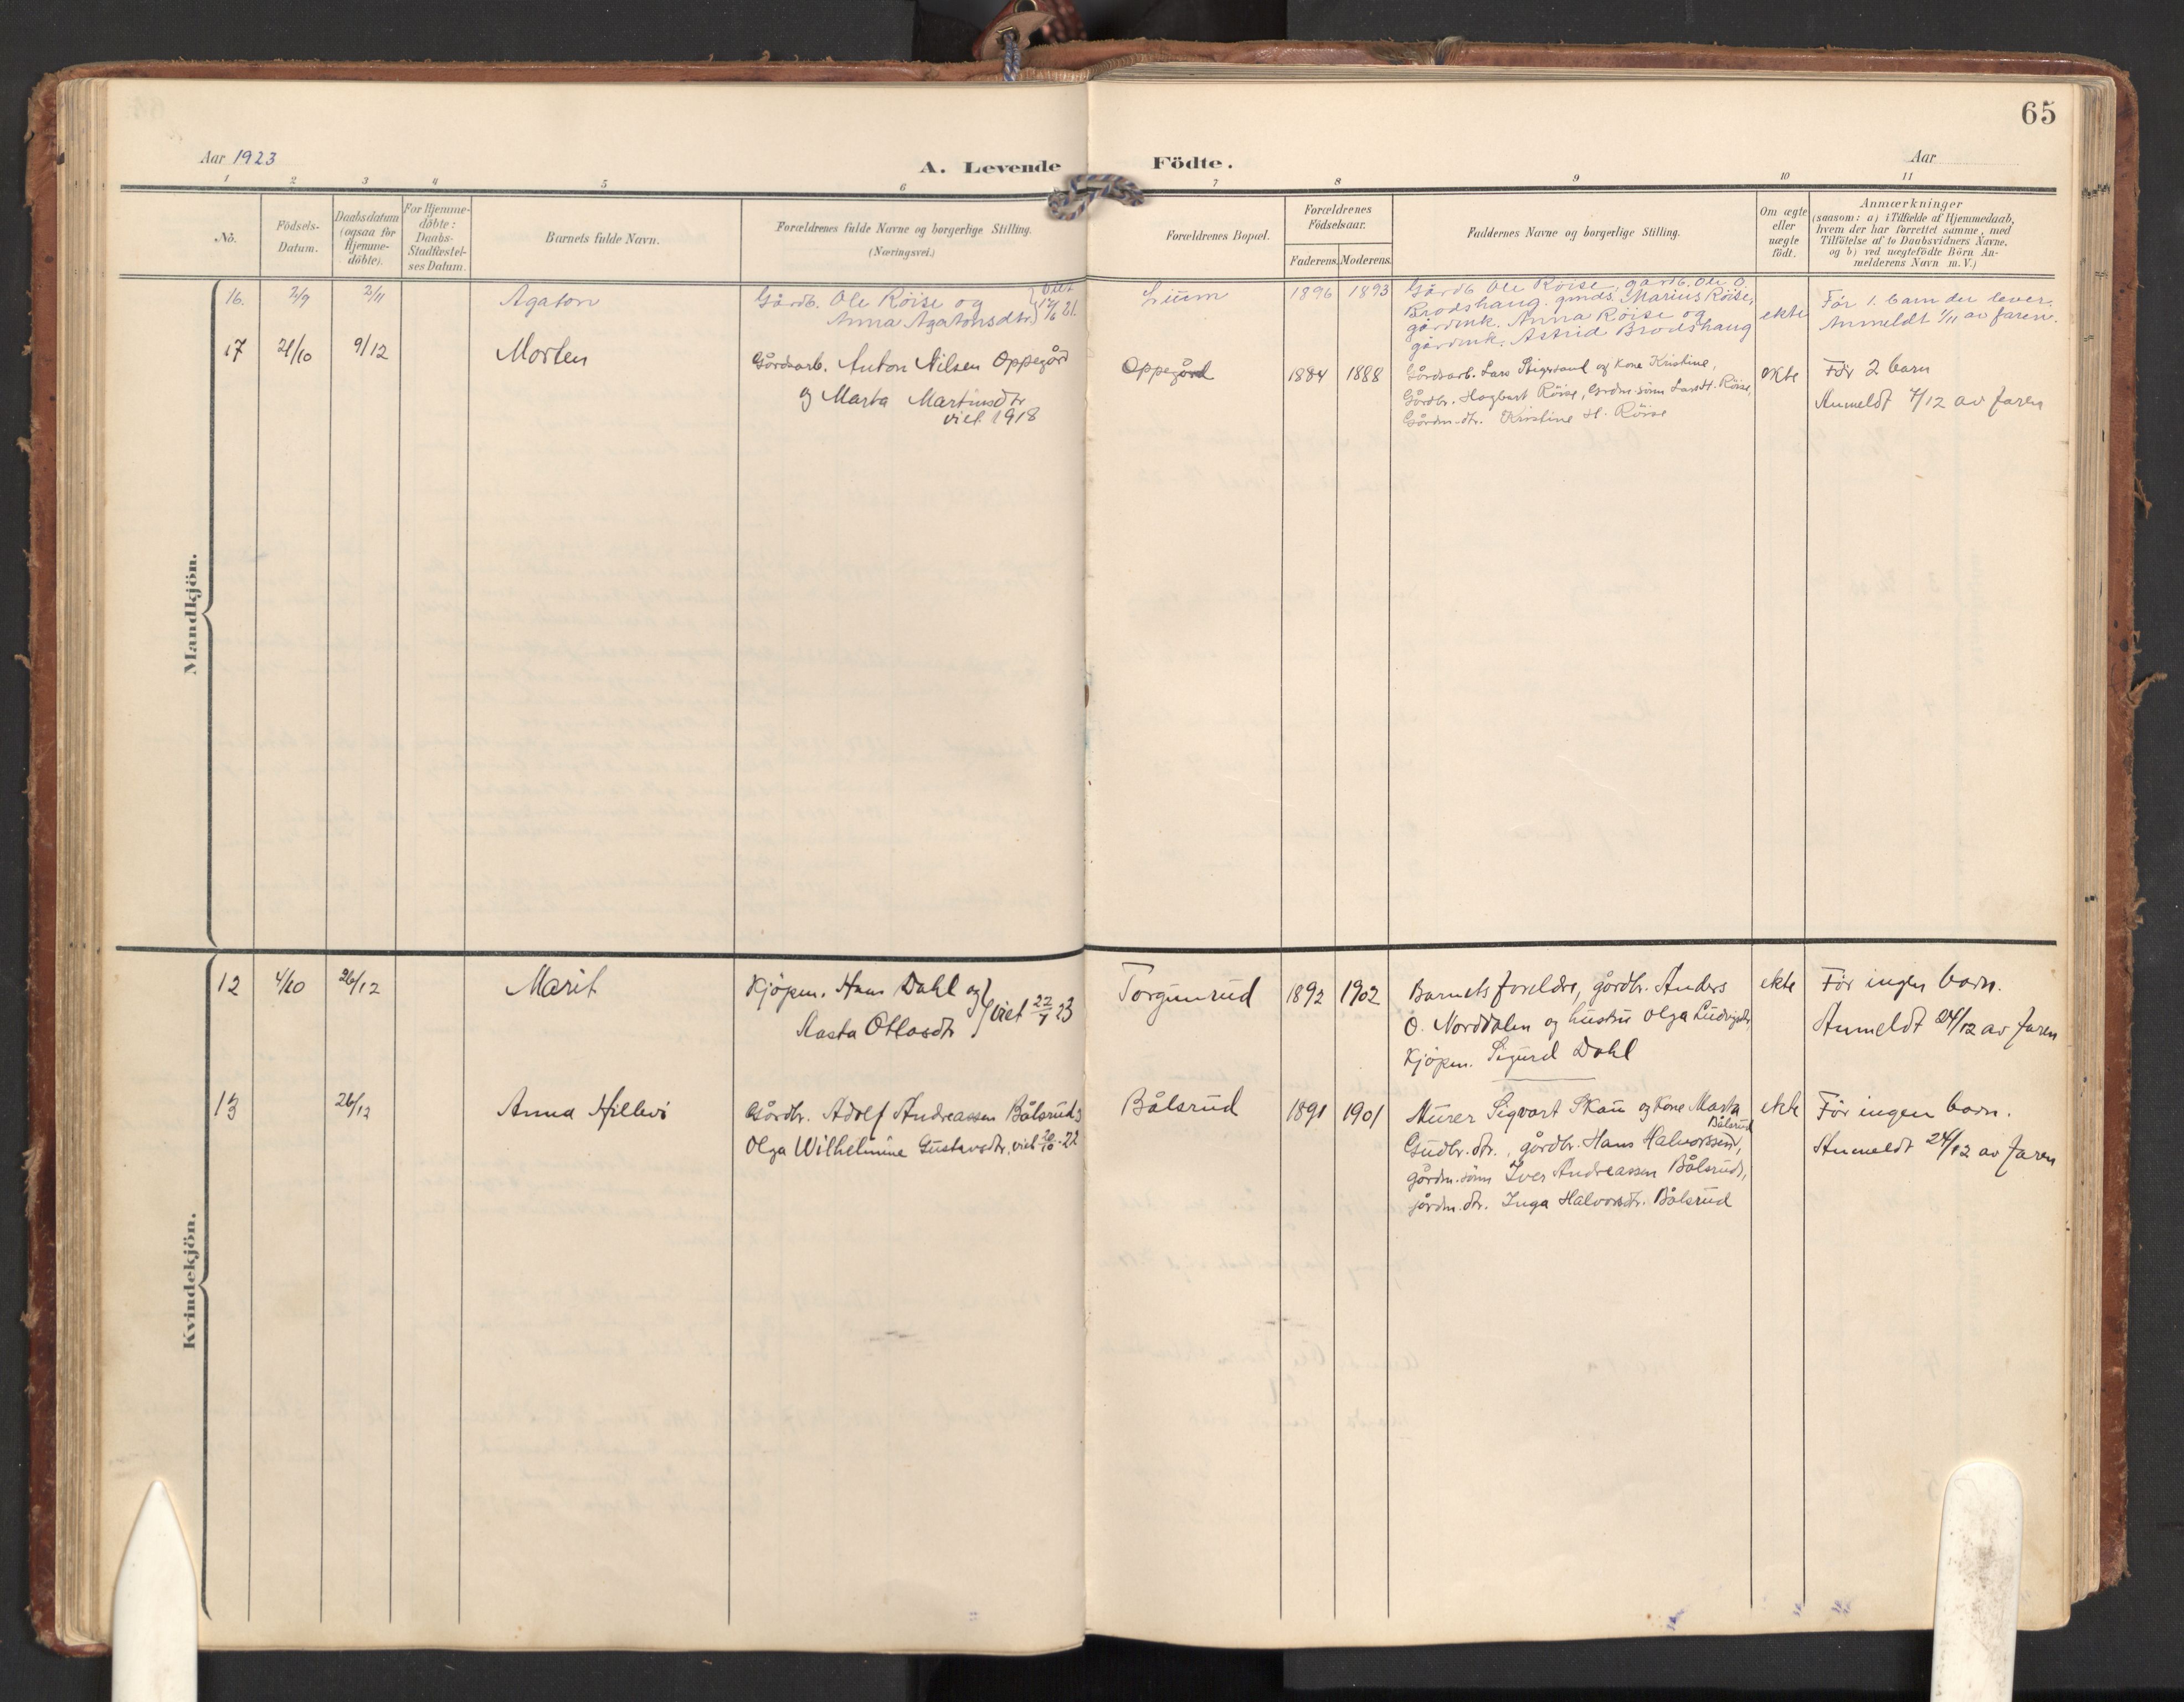 65
Aar 1923
A. Levende Födte.
Aar
1 2 3 4 5 6 7 8 9 10 11
No.
Födsels-
Datum.
Daabsdatum
(ogsaa for
Hjemme-
döbte).
For Hjemme-
döbte:
Daabs-
Stadfæstel-
ses Datum.
Barnets fulde Navn.
Forældrenes fulde Navne og borgerlige Stilling.
(Næringsvei.)
Forældrenes Bopæl.
Forældrenes
Födselsaar.
Faderens. Moderens.
Faddernes Navne og borgerlige Stilling.
Om ægte
eller
uægte
födt.
Anmærkninger
(saasom: a) i Tilfælde af Hjemmedaab,
hvem der har forrettet samme, med
Tilföielse af to Daabsvidners Navne,
og b) ved uægtefödte Börn An-
melderens Navn m. V.)
Mandkjön.
16. 2/9 2/11
Agaton
Gårdb. Ole Röise og
Anna Agatonsdtr.
viet
Lium
1896 1893
Gårdb. Ole Röise, gårdb. Ole O.
Brodshaug. gmds. Marius Röise,
gårdmk. Anna Röise og
gårdmk. Astrid Brodshaug
ekte
Før 1. barn der lever.
Anmeldt 1/11 av faren.
17 21/10 9/12
Morten
Gårdsarb. Anton Nilsen Oppegård
og Marta Martinsdtr
viet 1918
Oppegård
1884 1888
Gårdsarb. Lars og Kone Kristine,
Gårdbr. Hagbart Röise, Gårdm.sønn Lars H. Röise,
Gårdm.dtr. Kristine H. Röise
ekte
Før 2 barn
Anmeldt 7/12 av faren
Kvindekjön.
12 4/10 26/12
Marit
Kjøpm. Hans Dahl og
Marta Ottosdtr
viet 22/7 23
Torgunrud
1892 1902
Barnets foreldre, gårdbr. Anders
O. Norddalen og hustru Olga Ludvigsdtr,
Kjøpm. Sigurd Dahl
ekte
Før ingen barn.
Anmeldt 24/12 av faren
13 26/12
Anna Hillevi
Gårdbr. Adolf Andreassen Bålsrud og
Olga Wilhelmine Gustavsdtr, viet 20/10-22
Bålsrud
1891 1901
Murer Sigvart Skau og Kone Marta
Gudbr.dtr., gårdbr. Hans Halvorssen Bålsrud,
gårdm.sønn Iver Andreassen Bålsrud,
gårdm.dtr. Inga Halvorsdtr. Bålsrud
ekte
Før ingen barn.
Anmeldt 24/12 av faren